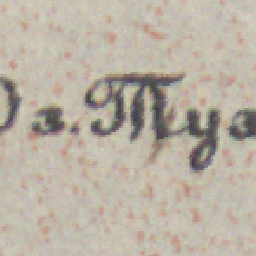 Оз. Туз